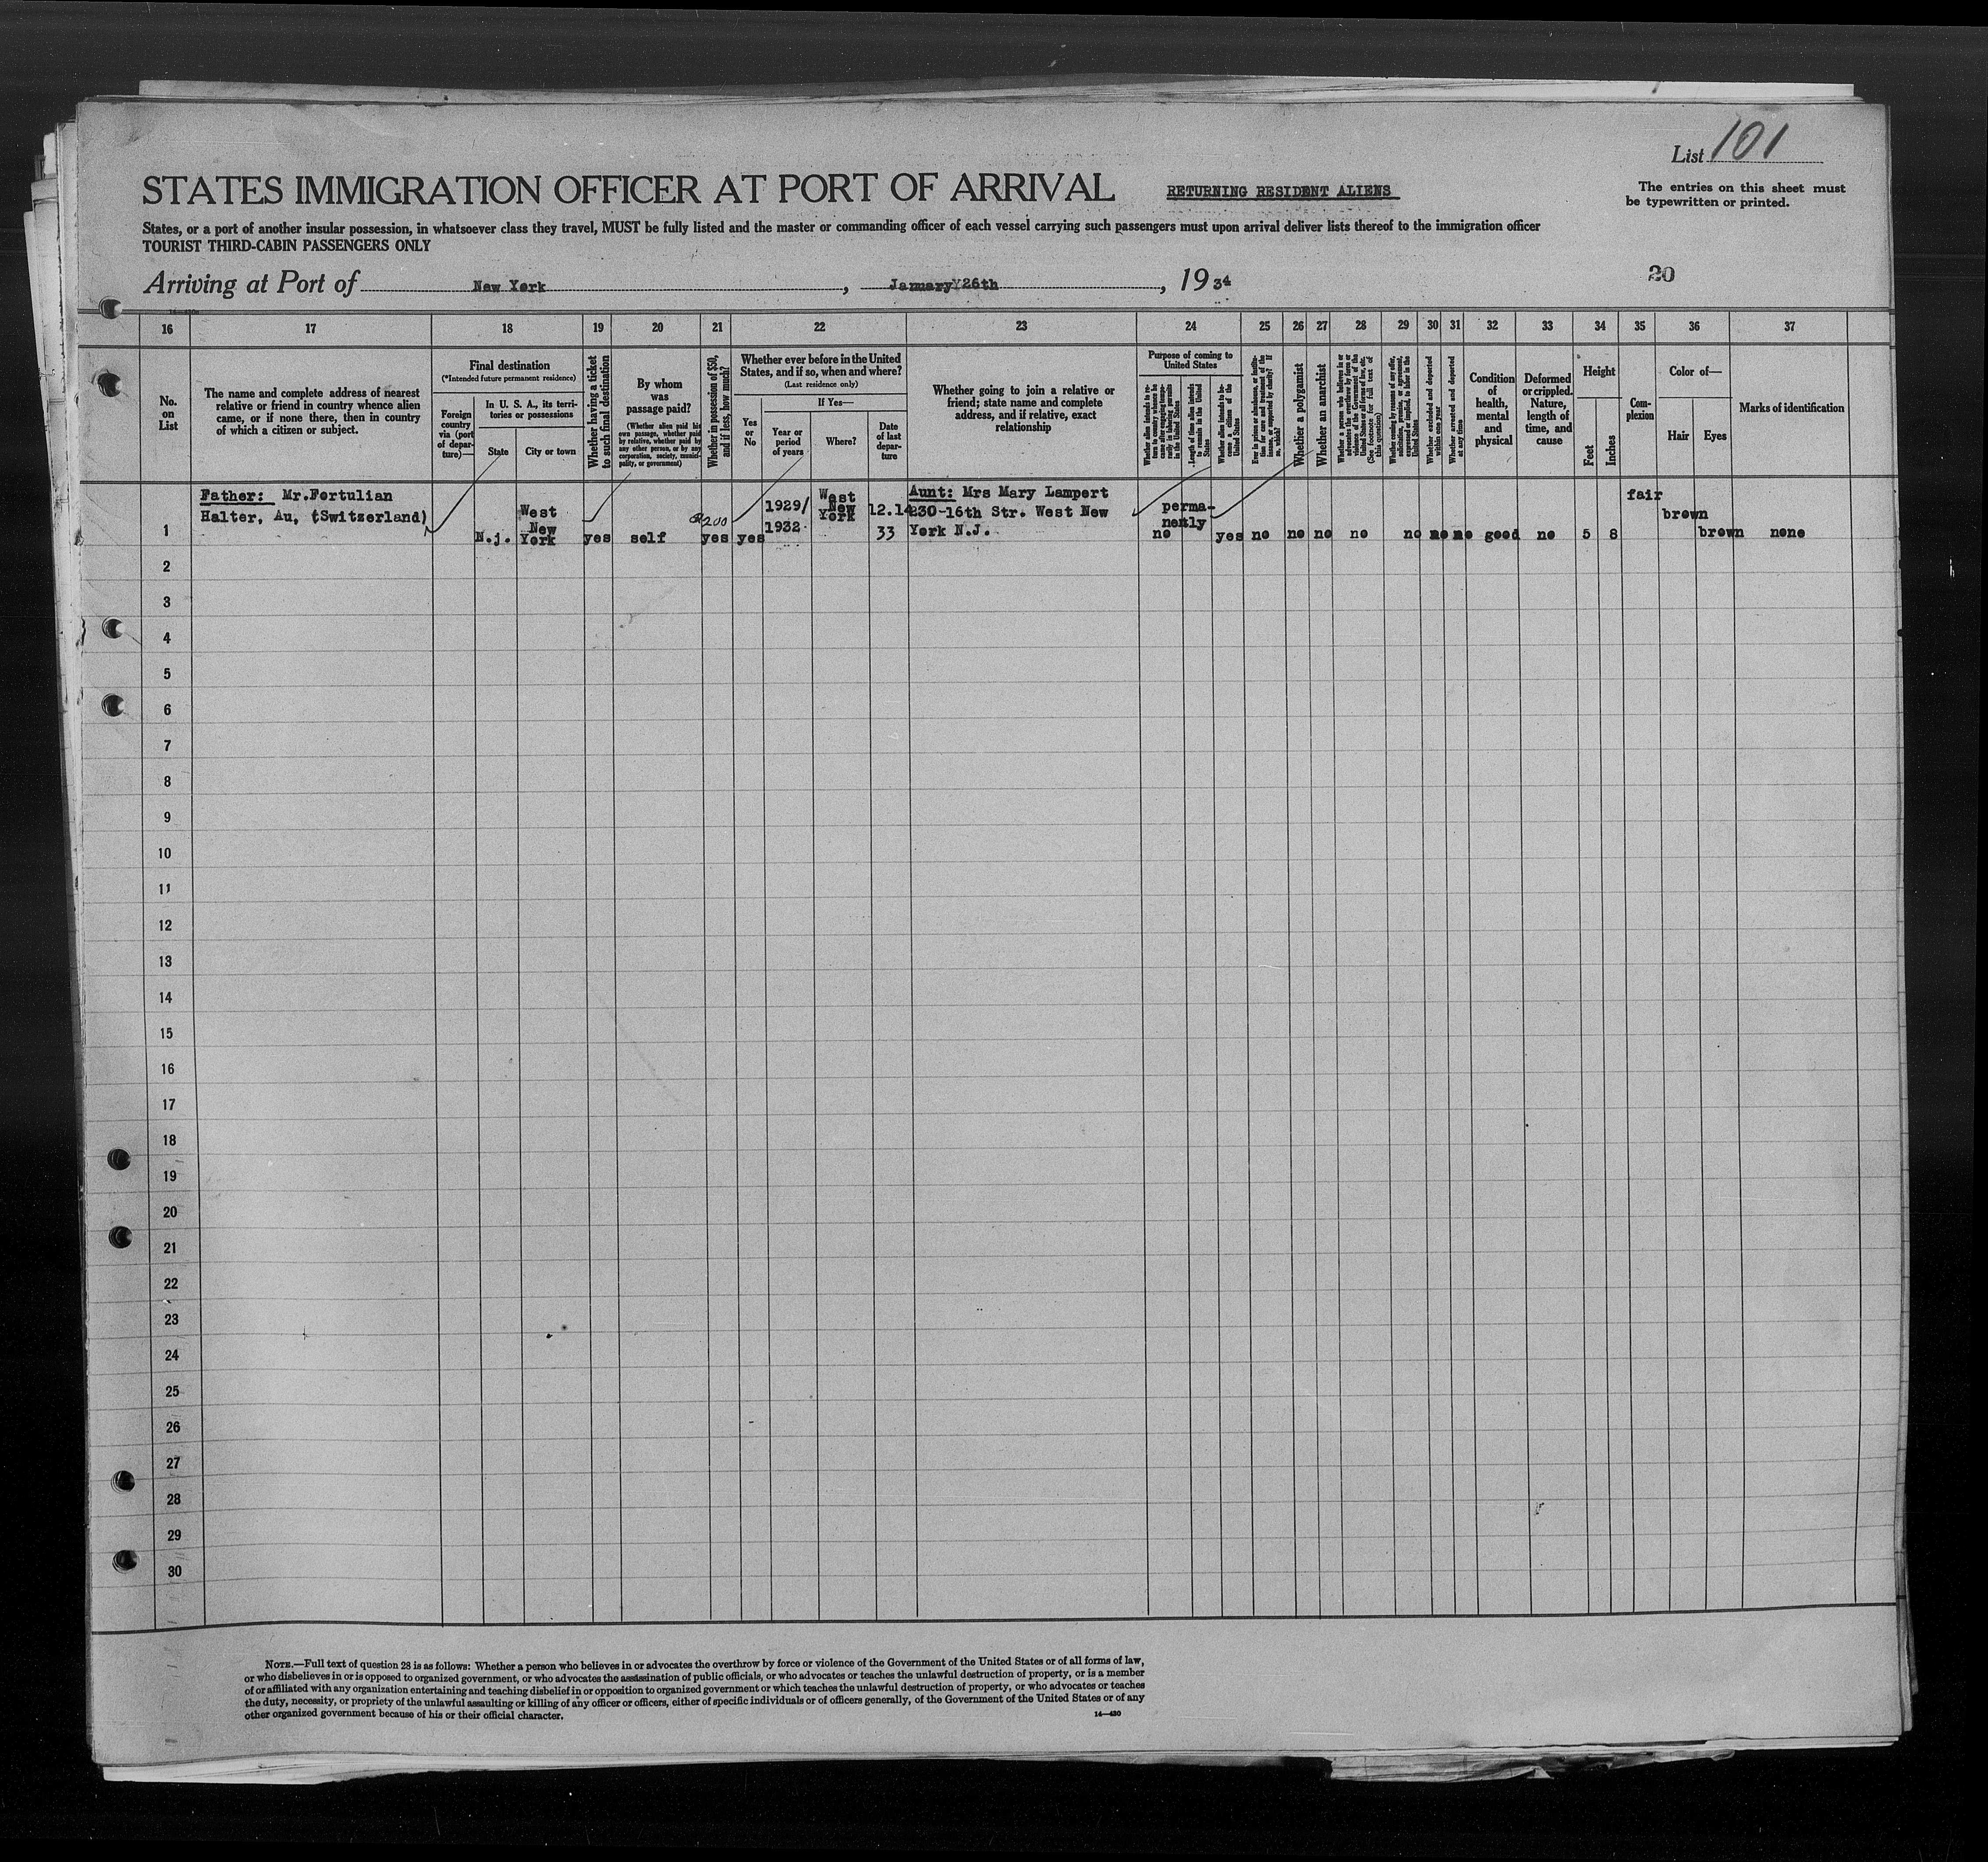 List 101
STATES IMMIGRATION OFFICER AT PORT OF ARRIVAL
RETURNING RESIDENT ALIENS
The entries on this sheet must
be typewritten or printed.
States, or a port of another insular possession, in whatsoever class they travel, MUST be fully listed and the master or commanding officer of each vessel carrying such passengers must upon arrival deliver lists thereof to the immigration officer
TOURIST THIRD-CABIN PASSENGERS ONLY
Arriving at Port of New York, January 26th, 1934
20
16 17 18 19 20 21 22 23 24 25 26 27 28 29 30 31 32 33 34 35 36 37
No.
on
List
The name and complete address of nearest
relative or friend in country whence alien
came, or if none there, then in country
of which a citizen or subject.
Final destination
(*Intended future permanent residence)
Foreign
country
via (port
of depar-
ture)—
In U. S. A., its terri-
tories or possessions
State
City or town
Whether having a ticket
to such final destination
By whom
was
passage paid?
(Whether alien paid his
own passage, whether paid
by relative, whether paid by
any other person, or by any
corporation, society, munici-
pality, or government)
Whether in possession of $50,
and if less, how much?
Whether ever before in the United
States, and if so, when and where?
(Last residence only)
Yes
or
No
If Yes—
Year or
period
of years
Where?
Date
of last
depar-
ture
Whether going to join a relative or
friend; state name and complete
address, and if relative, exact
relationship
Purpose of coming to
United States
Whether alien intends to re-
turn to country whence he
came after engaging tempo-
rarily in laboring pursuits
in the United States
Length of time alien intends
to remain in the United
States
Whether alien intends to be-
come a citizen of the
United States
Ever in prison or almshouse, or institu-
tion for care and treatment of the
insane, or supported by charity? If
so, which?
Whether a polygamist
Whether an anarchist
Whether a person who believes in or
advocates the overthrow by force or
violence of the Government of the
United States or all forms of law, etc.
(See footnote for full text of
this question)
Whether coming by reason of any offer,
solicitation, promise, or agreement,
expressed or implied, to labor in the
United States
Whether excluded and deported
within one year
Whether arrested and deported
at any time
Condition
of
health,
mental
and
physical
Deformed
or crippled.
Nature,
length of
time, and
cause
Height
Feet
Inches
Com-
plexion
Color of—
Hair
Eyes
Marks of identification
Father: Mr.Fortulian
Halter, Au, (Switzerland)
N.j.
West
New
York
yes
self
$200
yes
yes
1929/
1932
West
New
York
12.14
33
Aunt: Mrs Mary Lampert
230-16th Str. West New
York N.J.
no
perma-
nently
yes
no
no
no
no
no
no
no
good
no
5
8
fair
brown
brown
none
1
2
3
4
5
6
7
8
9
10
11
12
13
14
15
16
17
18
19
20
21
22
23
24
25
26
27
28
29
30
NOTE.—Full text of question 28 is as follows: Whether a person who believes in or advocates the overthrow by force or violence of the Government of the United States or of all forms of law,
or who disbelieves in or is opposed to organized government, or who advocates the assassination of public officials, or who advocates or teaches the unlawful destruction of property, or is a member
of or affiliated with any organization entertaining and teaching disbelief in or opposition to organized government or which teaches the unlawful destruction of property, or who advocates or teaches
the duty, necessity, or propriety of the unlawful assaulting or killing of any officer or officers, either of specific individuals or of officers generally, of the Government of the United States or of any
other organized government because of his or their official character.
14—430